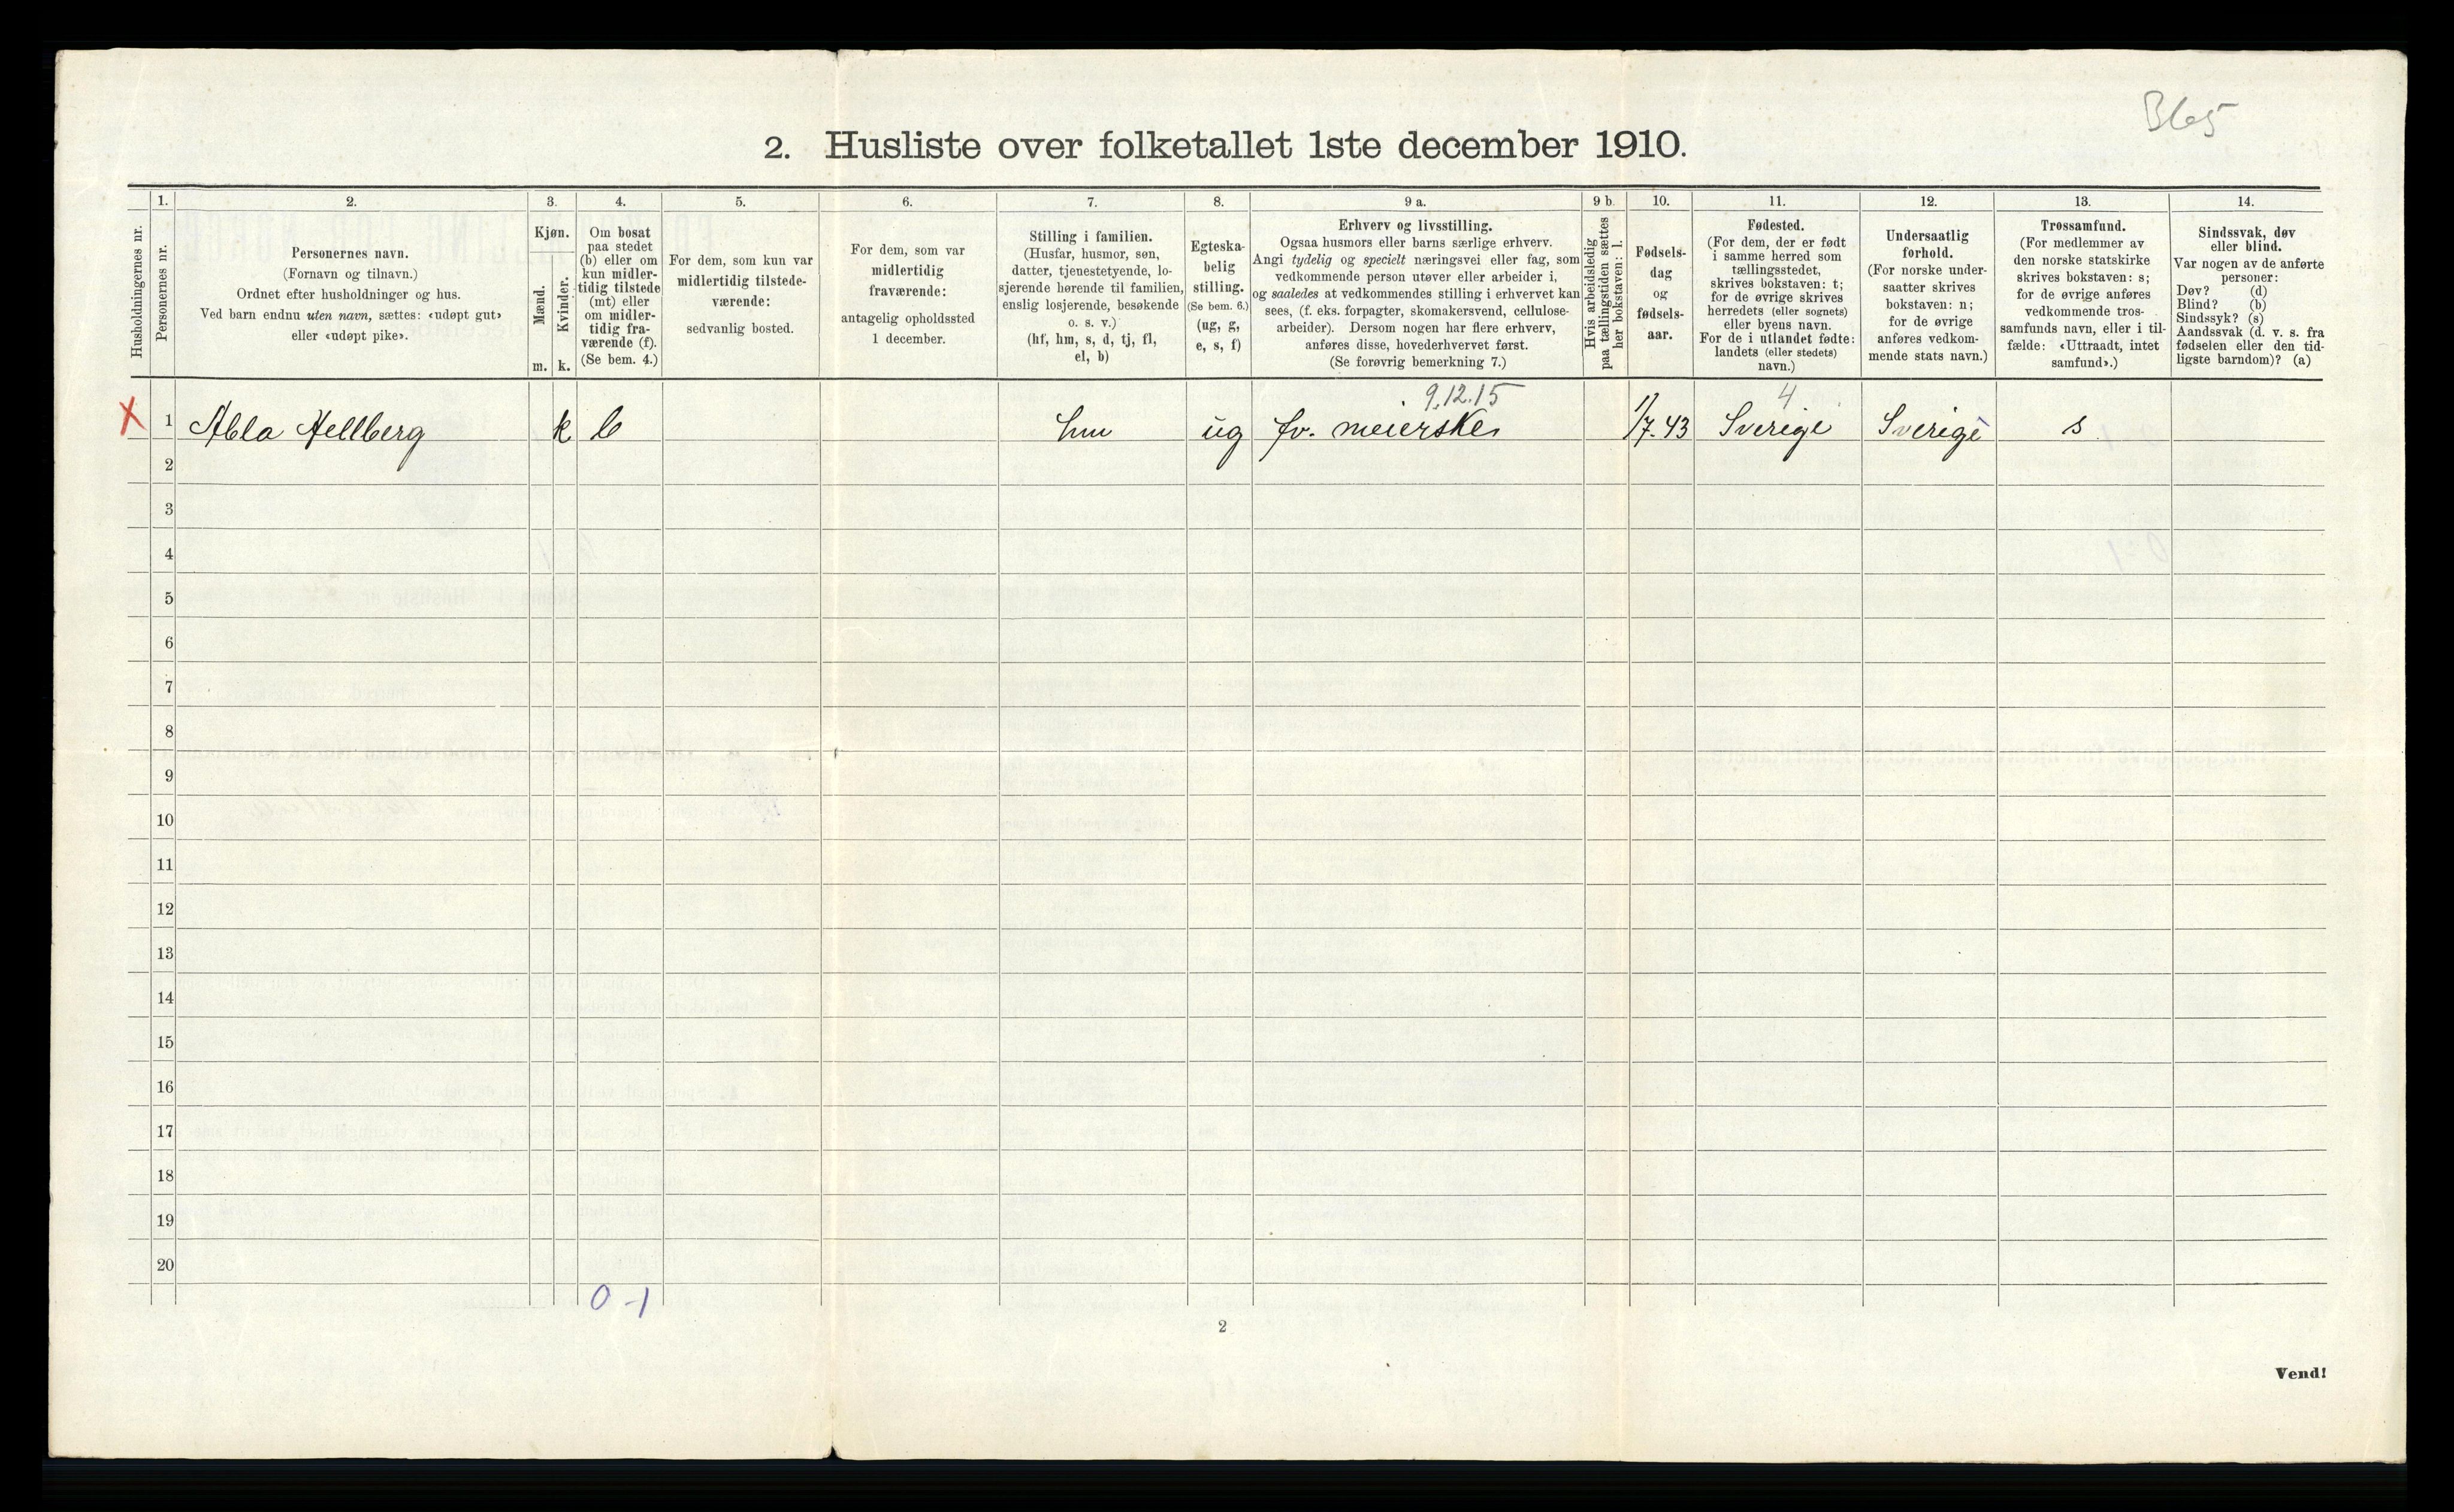 B65
2. Husliste over folketallet 1ste december 1910.
Husholdningernes nr.
1.
Personernes nr.
2.
Personernes navn.
(Fornavn og tilnavn.)
Ordnet efter husholdninger og hus.
Ved barn endnu uten navn, sættes: «udøpt gut»
eller «udøpt pike».
3.
Kjøn.
Mænd.
m.
Kvinder.
k.
4.
Om bosat
paa stedet
(b) eller om
kun midler-
tidig tilstede
(mt) eller
om midler-
tidig fra-
værende (f).
(Se bem. 4.)
5.
For dem, som kun var
midlertidig tilstede-
værende:
sedvanlig bosted.
6.
For dem, som var
midlertidig
fraværende:
antagelig opholdssted
1 december.
7.
Stilling i familien.
(Husfar, husmor, søn,
datter, tjenestetyende, lo-
sjerende hørende til familien,
enslig losjerende, besøkende
o. s. v.)
(hf, hm, s, d, tj, fl,
el, b)
8.
Egteska-
belig
stilling.
(Se bem. 6.)
(ug, g,
e, s, f)
9 a.
Erhverv og livsstilling.
Ogsaa husmors eller barns særlige erhverv.
Angi tydelig og specielt næringsvei eller fag, som
vedkommende person utøver eller arbeider i,
og saaledes at vedkommendes stilling i erhvervet kan
sees, (f. eks. forpagter, skomakersvend, cellulose-
arbeider). Dersom nogen har flere erhverv,
anføres disse, hovederhvervet først.
(Se forøvrig bemerkning 7.)
9 b.
Hvis arbeidsledig
paa tællingstiden sættes
her bokstaven: l.
10.
Fødsels-
dag
og
fødsels-
aar.
11.
Fødested.
(For dem, der er født
i samme herred som
tællingsstedet,
skrives bokstaven: t;
for de øvrige skrives
herredets (eller sognets)
eller byens navn.
For de i utlandet fødte:
landets (eller stedets)
navn.)
12.
Undersaatlig
forhold.
(For norske under-
saatter skrives
bokstaven: n;
for de øvrige
anføres vedkom-
mende stats navn.)
13.
Trossamfund.
(For medlemmer av
den norske statskirke
skrives bokstaven: s;
for de øvrige anføres
vedkommende tros-
samfunds navn, eller i til-
fælde: «Uttraadt, intet
samfund».)
14.
Sindssvak, døv
eller blind.
Var nogen av de anførte
personer:
Døv? (d)
Blind? (b)
Sindssyk? (s)
Aandssvak (d. v. s. fra
fødselen eller den tid-
ligste barndom)? (a)
9.12.15 4
X 1 Abla Hellberg k b hm ug fv. meierske 1/7.43 Sverige Sverige s
2
3
4
5
6
7
8
9
10
11
12
13
14
15
16
17
18
19
20
0-1
2
Vend!